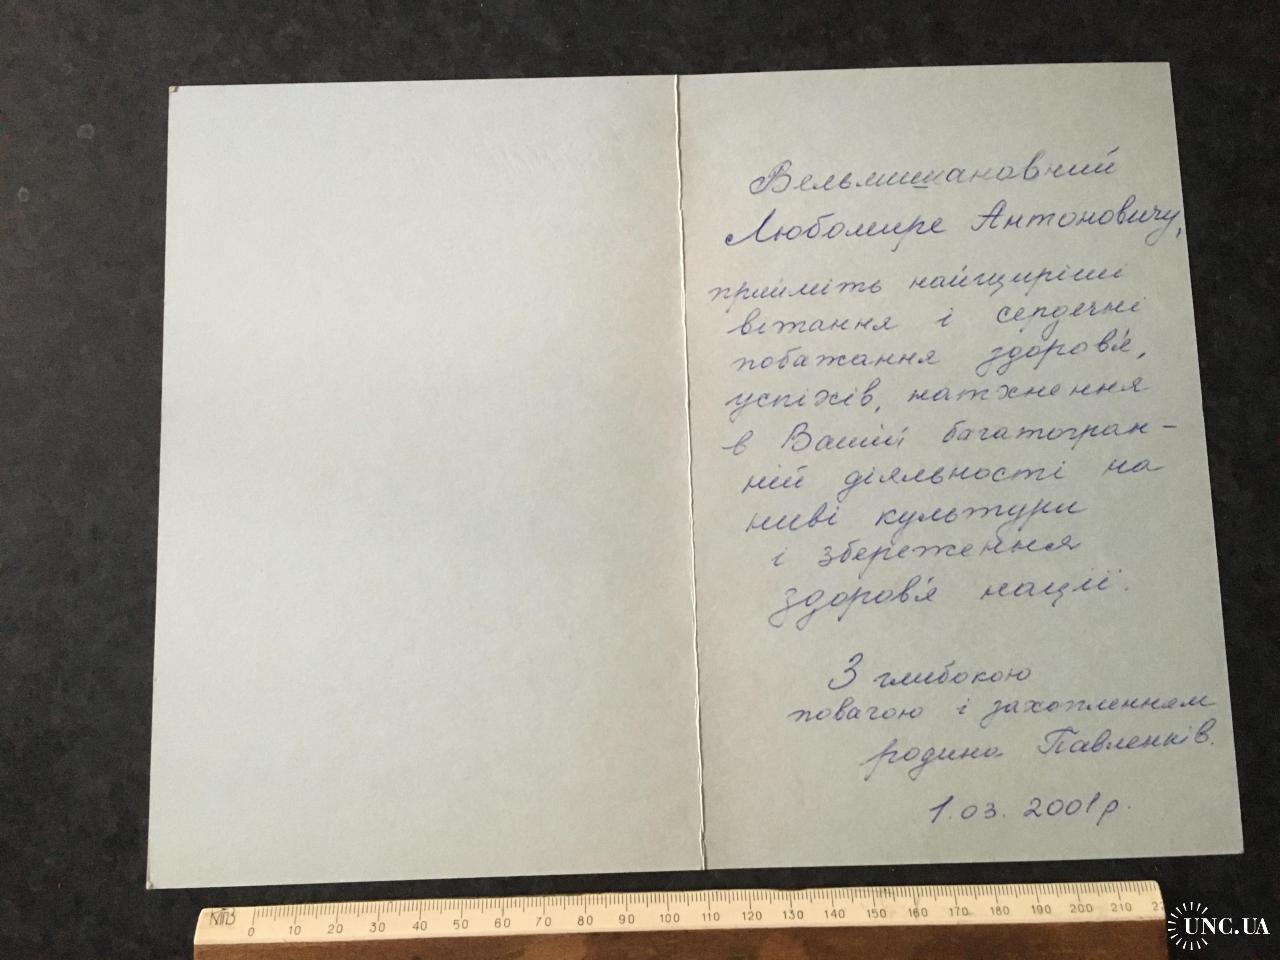 Вельмишановний
Любомире Антоновичу,
прийміть найщиріші
вітання і сердечні
побажання здоров'я,
успіхів, натхнення
в Вашій багатогран-
ній діяльності на
ниві культури
і збереження
здоров'я нації.
З глибокою
повагою і захопленням
родина Павленків.
1.03.2001р.
0 10 20 30 40 50 60 70 80 90 100 110 120 130 140 150 160 170 180 190 200 210
UNC.UA